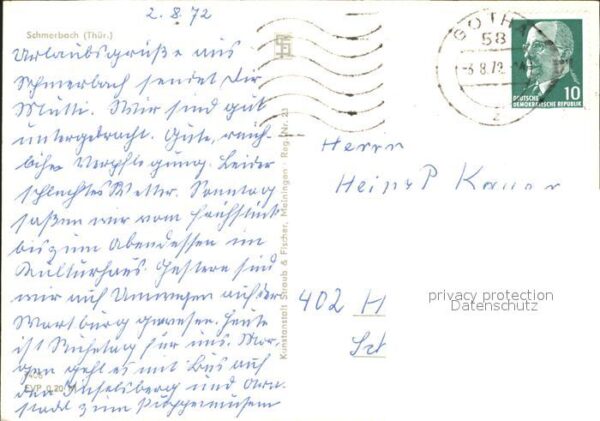 2.8.72
Schmerbach (Thür.)
Urlaubsgrüße aus
Schmerbach sendet Dir
Mutti. Wir sind gut
untergebracht. Gute, reich-
liche Verpflegung. Leider
schlechtes Wetter. Sonntag
saßen wir vom Frühstück
bis zum Abendessen im
Kulturhaus. Gestern sind
wir auf Umwegen auf der
Wartburg gewesen. Heute
ist Ruhetag für uns. Mor-
gen geht es mit Bus auf
den Inselsberg und Arn-
stadt zum Puppenmuseum
EVP 0,20 M
Kunstanstalt Straub & Fischer, Meiningen · Reg.-Nr. 21
GOTHA
58
-3.8.72
10
DEUTSCHE
DEMOKRATISCHE REPUBLIK
Herrn
Heinz P
402 H
privacy protection
Datenschutz